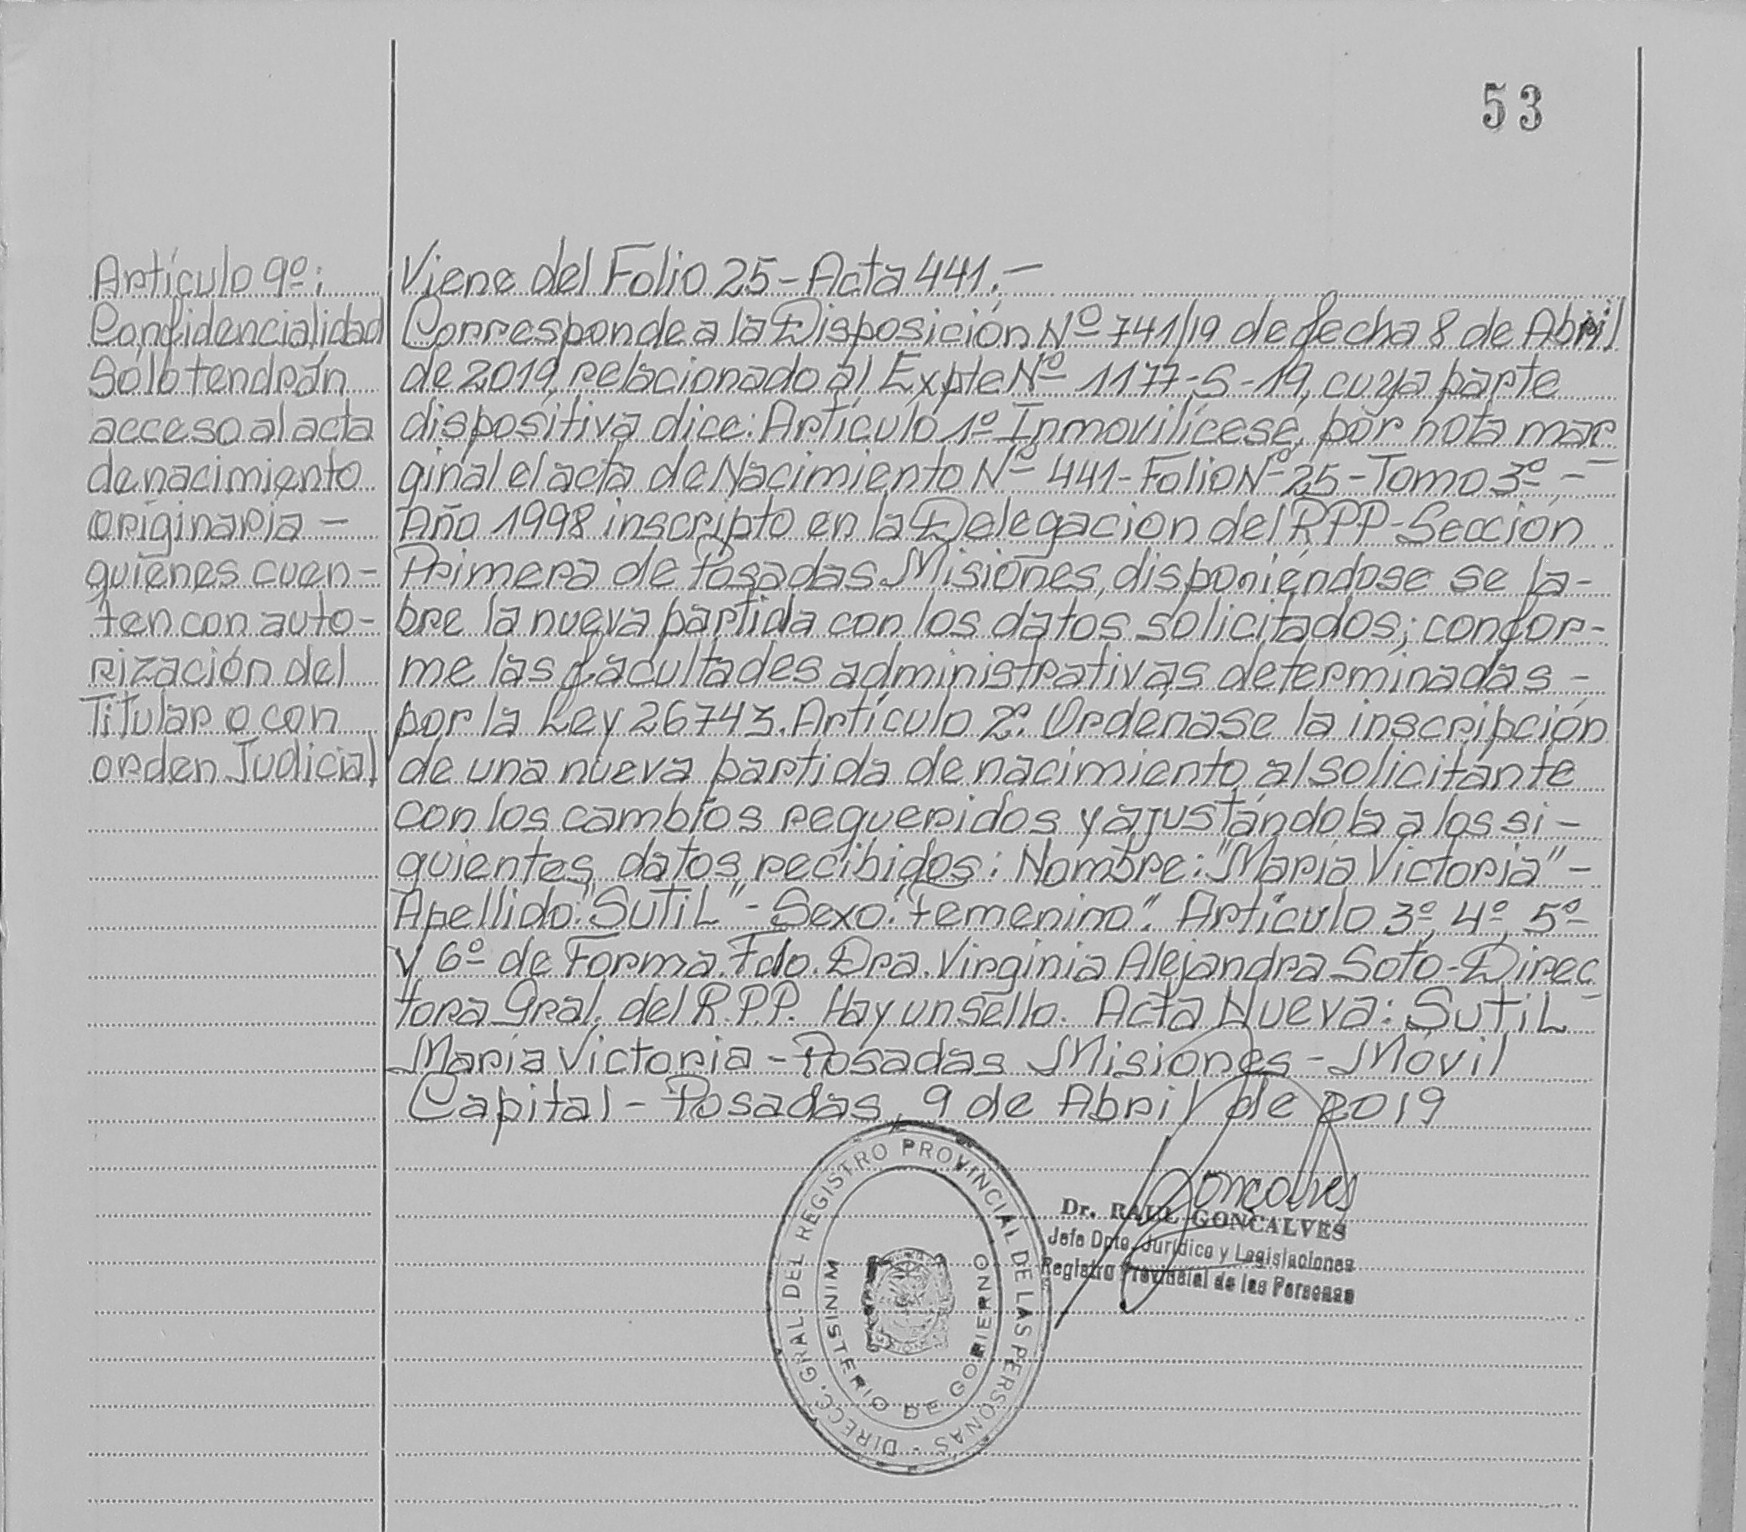 53
Artículo 9º:
Confidencialidad
Sólo tendrán
acceso al acta
de nacimiento
originaria -
quienes cuen-
ten con auto-
rización del
Titular o con
orden Judicial
Viene del Folio 25 - Acta 441. -
Corresponde a la Disposición Nº 741/19 de fecha 8 de Abril
de 2019, relacionado al Expte Nº 1177-S-19, cuya parte
dispositiva dice: Artículo 1º Inmovilícese, por nota mar
ginal el acta de Nacimiento Nº 441 - Folio Nº 25 - Tomo 3º - -
Año 1998 inscripto en la Delegación del RPP - Sección
Primera de Posadas Misiones, disponiéndose se la-
bre la nueva partida con los datos solicitados; confor-
me las facultades administrativas determinadas -
por la Ley 26743. Artículo 2º. Ordénase la inscripción
de una nueva partida de nacimiento al solicitante
con los cambios requeridos y ajustándola a los si -
guientes datos recibidos: Nombre: "María Victoria" -
Apellido: "SUTIL" - Sexo: "femenino". Artículo 3º, 4º, 5º
y 6º de Forma. Fdo. Dra. Virginia Alejandra Soto - Direc
tora Gral. del R.P.P. Hay un sello. Acta Nueva: SUTIL -
María Victoria - Posadas Misiones - Móvil
Capital - Posadas, 9 de Abril de 2019
DIRECC. GRAL. DEL REGISTRO PROVINCIAL DE LAS PERSONAS -
MINISTERIO DE GOBIERNO
Goncalves
Dr. RAUL GONCALVES
Jefe Dpto. Jurídico y Legislaciones
Registro Provincial de las Personas